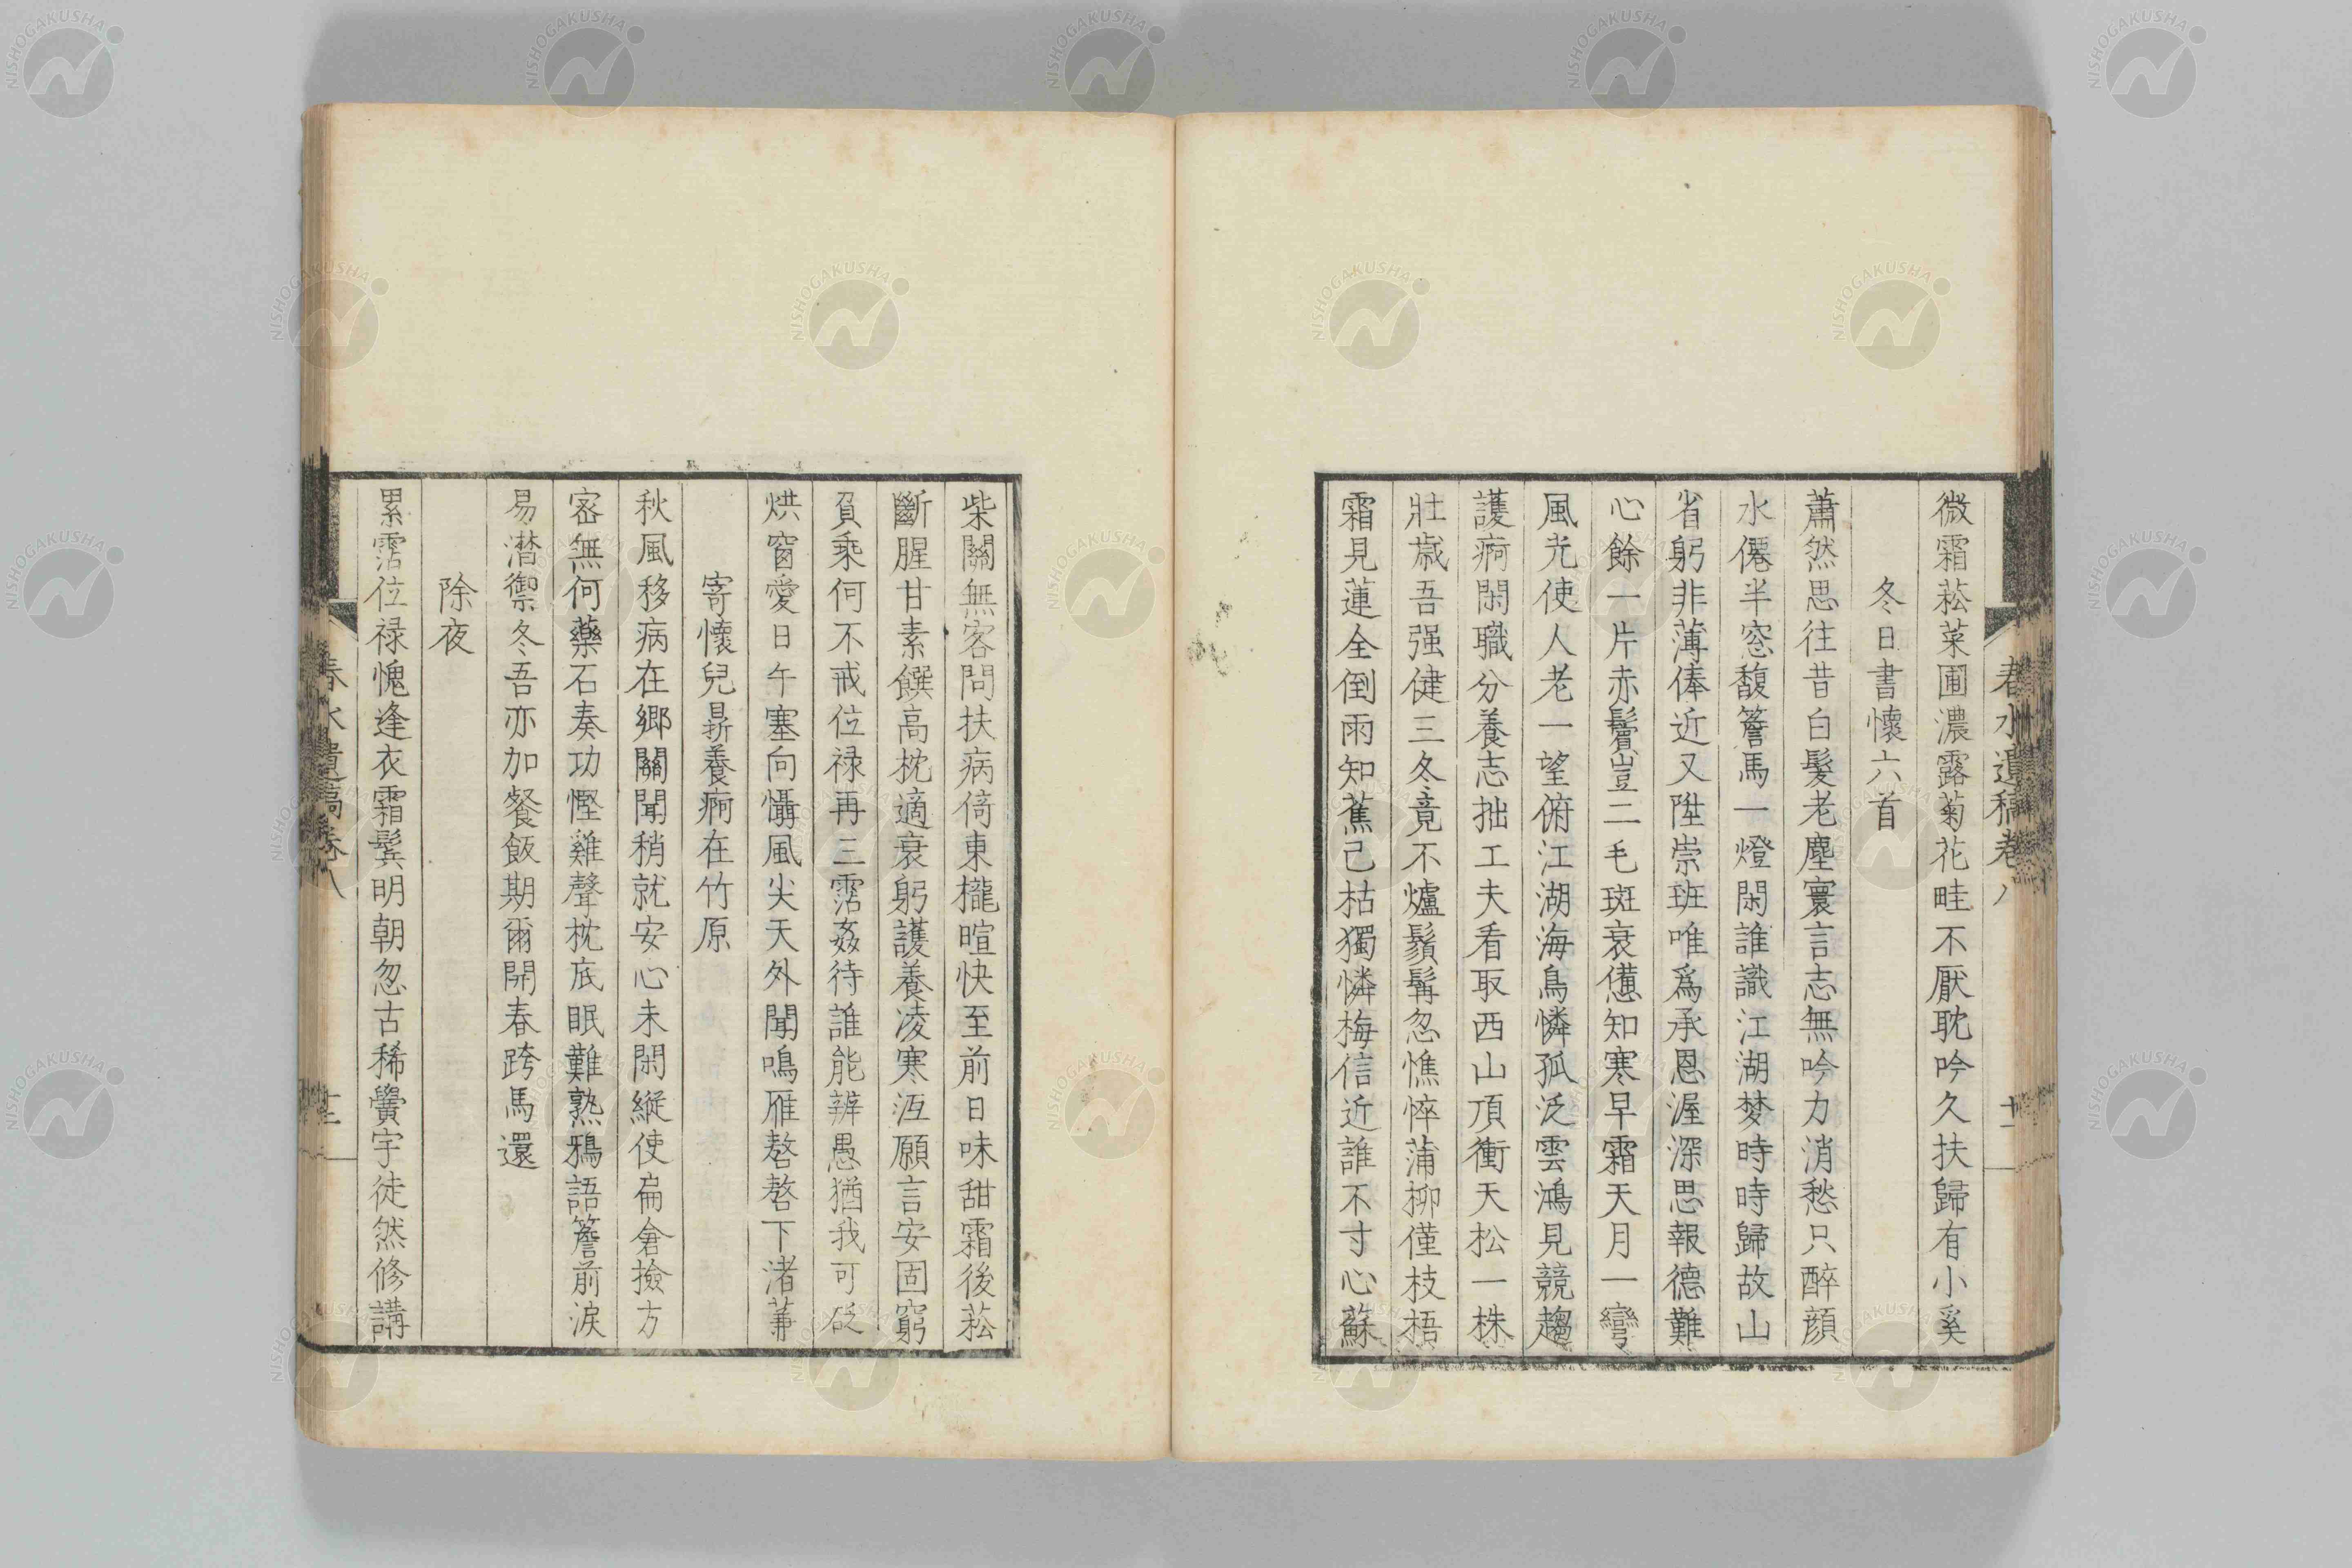 微霜菘菜圃濃露菊花畦不厭耽吟久扶歸有小奚
冬日書懷六首
蕭然思往昔白髮老塵寰言志無吟力消愁只醉顔
水僊半窓馥簷馬一燈閑誰識江湖梦時時歸故山
省躬非薄俸近又陞崇班唯爲承恩渥深思報德難
心餘一片赤鬢豈二毛斑衰憊知寒早霜天月一彎
風光使人老一望俯江湖海鳥憐孤泛雲鴻見競趨
護痾閑職分養志拙工夫看取西山頂衝天松一株
壯歳吾强健三冬竟不爐鬚髯忽憔悴蒲柳僅枝梧
霜見蓮全倒雨知蕉己枯獨憐梅信近誰不寸心蘇
春水遺稿卷八
十一
柴關無客問扶病倚東櫳暄快至前日味甜霜後菘
斷腥甘素饌高枕適衰躬護養凌寒沍願言安固窮
負乘何不戒位禄再三霑姦待誰能辨愚猶我可砭
烘窗愛日午塞向懾風尖天外聞鳴雁嗸嗸下渚蒹
寄懷兒㬎養痾在竹原
秋風移病在鄉關聞稍就安心未閑縱使扁倉撿方
宻無何藥石奏功慳雞聲枕底眠難熟鴉語簷前淚
易潸禦冬吾亦加餐飯期爾開春跨馬還
除夜
累霑位禄愧逢衣霜鬢明朝忽古稀黌宇徒然修講
春水遺稿卷八
十二
NISHOGAKUSHA